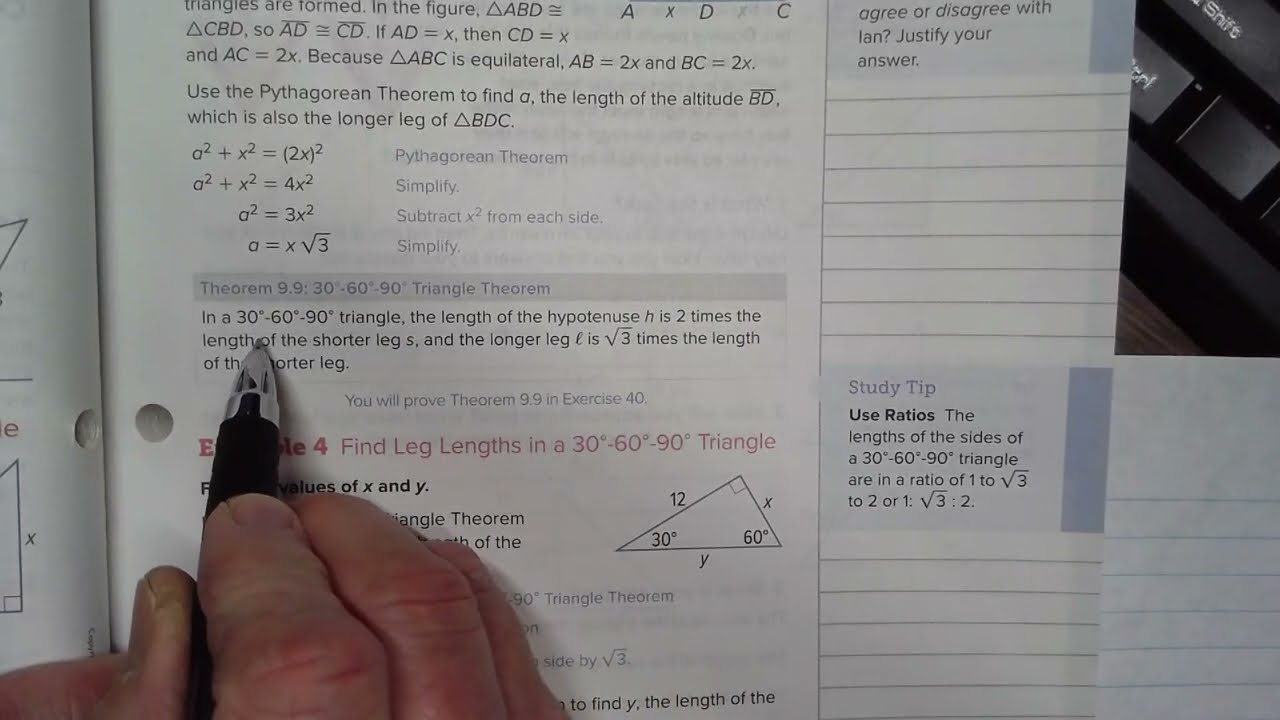 triangles are formed. In the figure, △ABD ≅
△CBD, so AD ≅ CD. If AD = x, then CD = x
and AC = 2x. Because △ABC is equilateral, AB = 2x and BC = 2x.
A x D x C
Use the Pythagorean Theorem to find a, the length of the altitude BD,
which is also the longer leg of △BDC.
a² + x² = (2x)² Pythagorean Theorem
a² + x² = 4x² Simplify.
a² = 3x² Subtract x² from each side.
a = x √3 Simplify.
Theorem 9.9: 30°-60°-90° Triangle Theorem
In a 30°-60°-90° triangle, the length of the hypotenuse h is 2 times the
length of the shorter leg s, and the longer leg ℓ is √3 times the length
of shorter leg.
You will prove Theorem 9.9 in Exercise 40.
4 Find Leg Lengths in a 30°-60°-90° Triangle
values of x and y.
Triangle Theorem
of the
-90° Triangle Theorem
side by √3.
to find y, the length of the
12
x
30°
60°
y
agree or disagree with
Ian? Justify your
answer.
Study Tip
Use Ratios The
lengths of the sides of
a 30°-60°-90° triangle
are in a ratio of 1 to √3
to 2 or 1: √3 : 2.
x
Shift